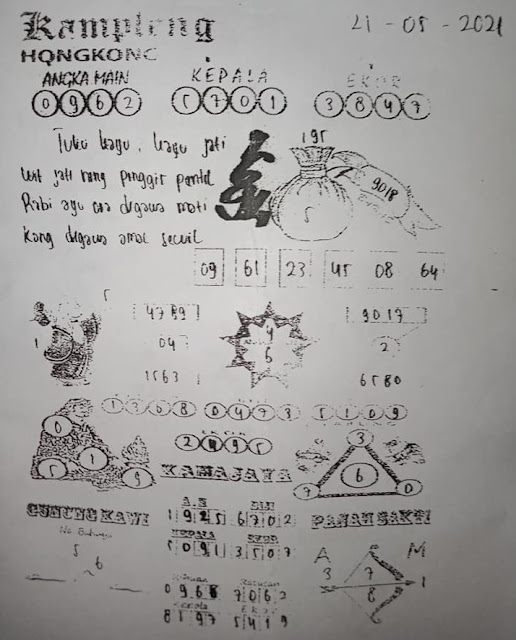 Kampleng
21 - 05 - 2021
HONGKONG
ANGKA MAIN
KEPALA
EKOR
0 9 6 2
5 7 0 1
3 8 4 7
Tuku kayu, kayu jati
195
9018
5
Rabi ayu digawa mati
kang digawa amal secuil
09 61 23 45 08 64
1
04
1563
4
6
9017
2
6580
1 3 6 8 0 4 7 3 5 1 0 9
0
5
1
9
KAMAJAYA
3
6
7
0
GUNUNG KAWI
A.M
1 9 2 5 6 7 0 2
PANAH SAKTI
KEPALA
EKOR
5 0 9 1 3 5 0 7
5
6
A
M
3
7
1
8
Ribuan
Ratusan
7 0 6 2
Kepala
Ekor
8 1 9 7 5 4 1 9